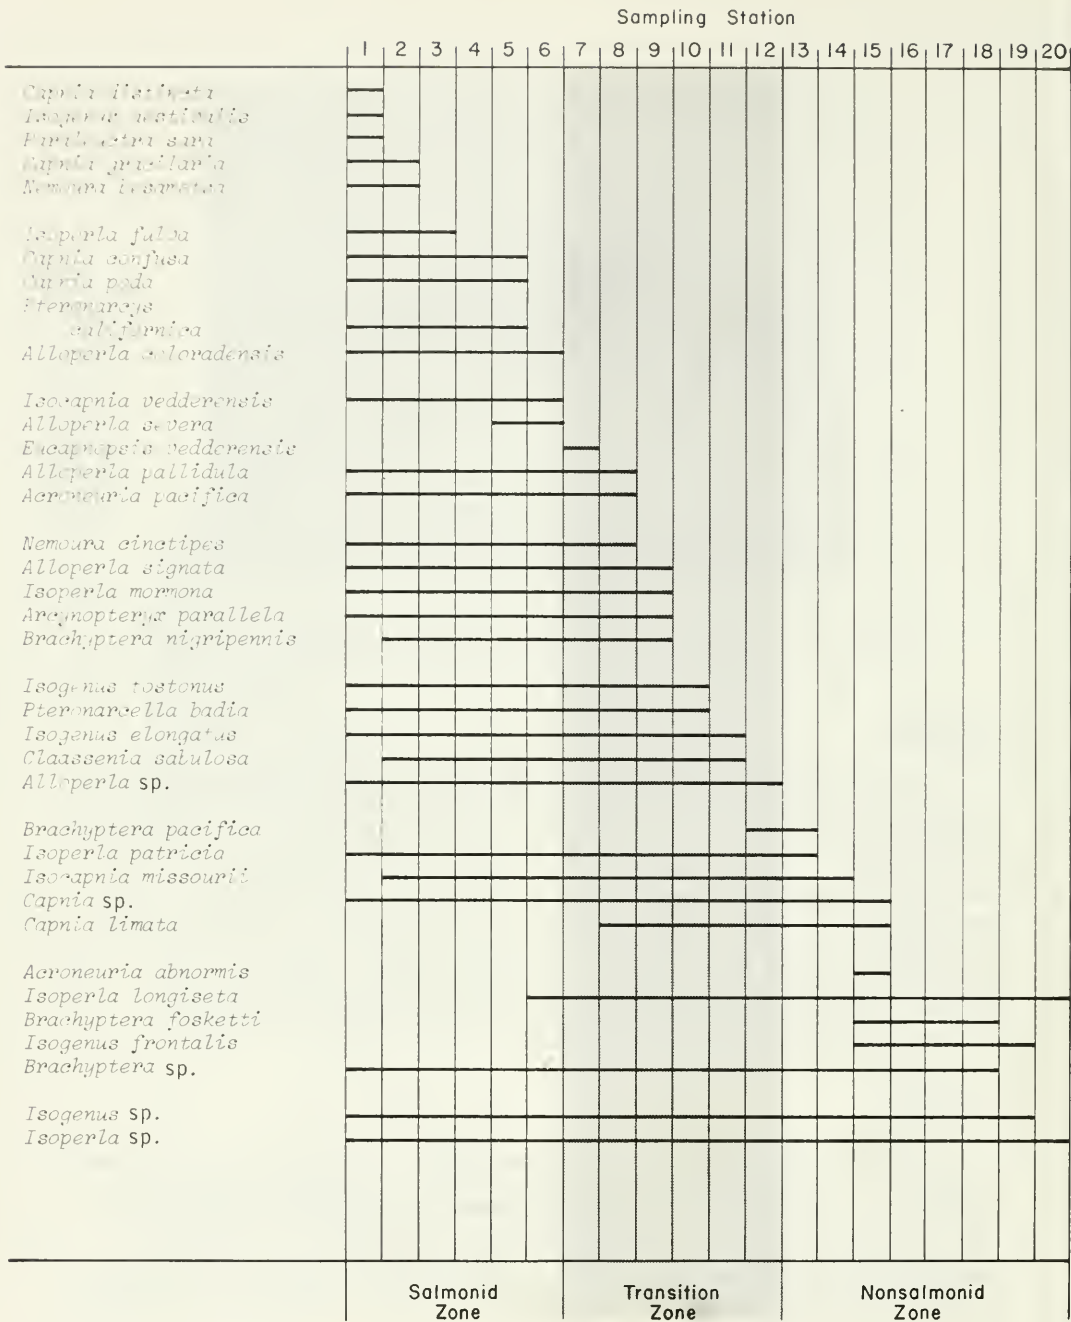 Sampling Station
1 2 3 4 5 6 7 8 9 10 11 12 13 14 15 16 17 18 19 20
Capnia
Isogenus
sara
Capnia gracilaria
Nemoura besametsa
Isoperla fulva
Capnia confusa
Capnia poda
Pteronarcys
californica
Alloperla coloradensis
Isocapnia vedderensis
Alloperla severa
Eucapnopsis vedderensis
Alloperla pallidula
Acroneuria pacifica
Nemoura cinctipes
Alloperla signata
Isoperla mormona
Arcynopteryx parallela
Brachyptera nigripennis
Isogenus tostonus
Pteronarcella badia
Isogenus elongatus
Claassenia sabulosa
Alloperla sp.
Brachyptera pacifica
Isoperla patricia
Isocapnia missourii
Capnia sp.
Capnia limata
Acroneuria abnormis
Isoperla longiseta
Brachyptera fosketti
Isogenus frontalis
Brachyptera sp.
Isogenus sp.
Isoperla sp.
Salmonid Transition Nonsalmonid
Zone Zone Zone